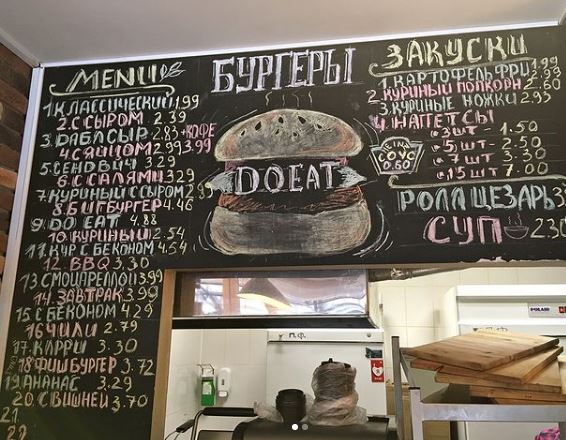 MENU
1.КЛАССИЧЕСКИЙ 1.99
2.С СЫРОМ 2.39
3.ДАБЛ СЫР 2.83 +КОФЕ
4.С ЯЙЦОМ 2.99 3.99
5.СЕНДВИЧ 3.29
6.С САЛЯМИ 3.29
7.КУРИНЫЙ С СЫРОМ
8.БИГБУРГЕР 4.46
9. DO EAT 4.88
10.КУРИНЫЙ 2.54
11.КУР С БЕКОНОМ 4.54
12. BBQ 3.30
14.ЗАВТРАК 3.99
15.С БЕКОНОМ 4.29
16 ЧИЛИ 2.79
17. КАРРИ 3.30
18 ФИШБУРГЕР 3.72
19.АНАНАС 3.29
20. С ВИШНЕЙ 3.70
21
22
БУРГЕРЫ
DO EAT
ЗАКУСКИ
1.КАРТОФЕЛЬ ФРИ 1.99 2.99
2.КУРИНЫЙ ПОПКОРН 2.60
3.КУРИНЫЕ НОЖКИ 2.93
4.НАГГЕТСЫ
3ШТ - 1.50
5ШТ - 2.50
7ШТ - 3.30
15ШТ - 7.00
СОУС
0.60
РОЛЛ ЦЕЗАРЬ
СУП
П.Ф.
POLAIR
П.Ф.